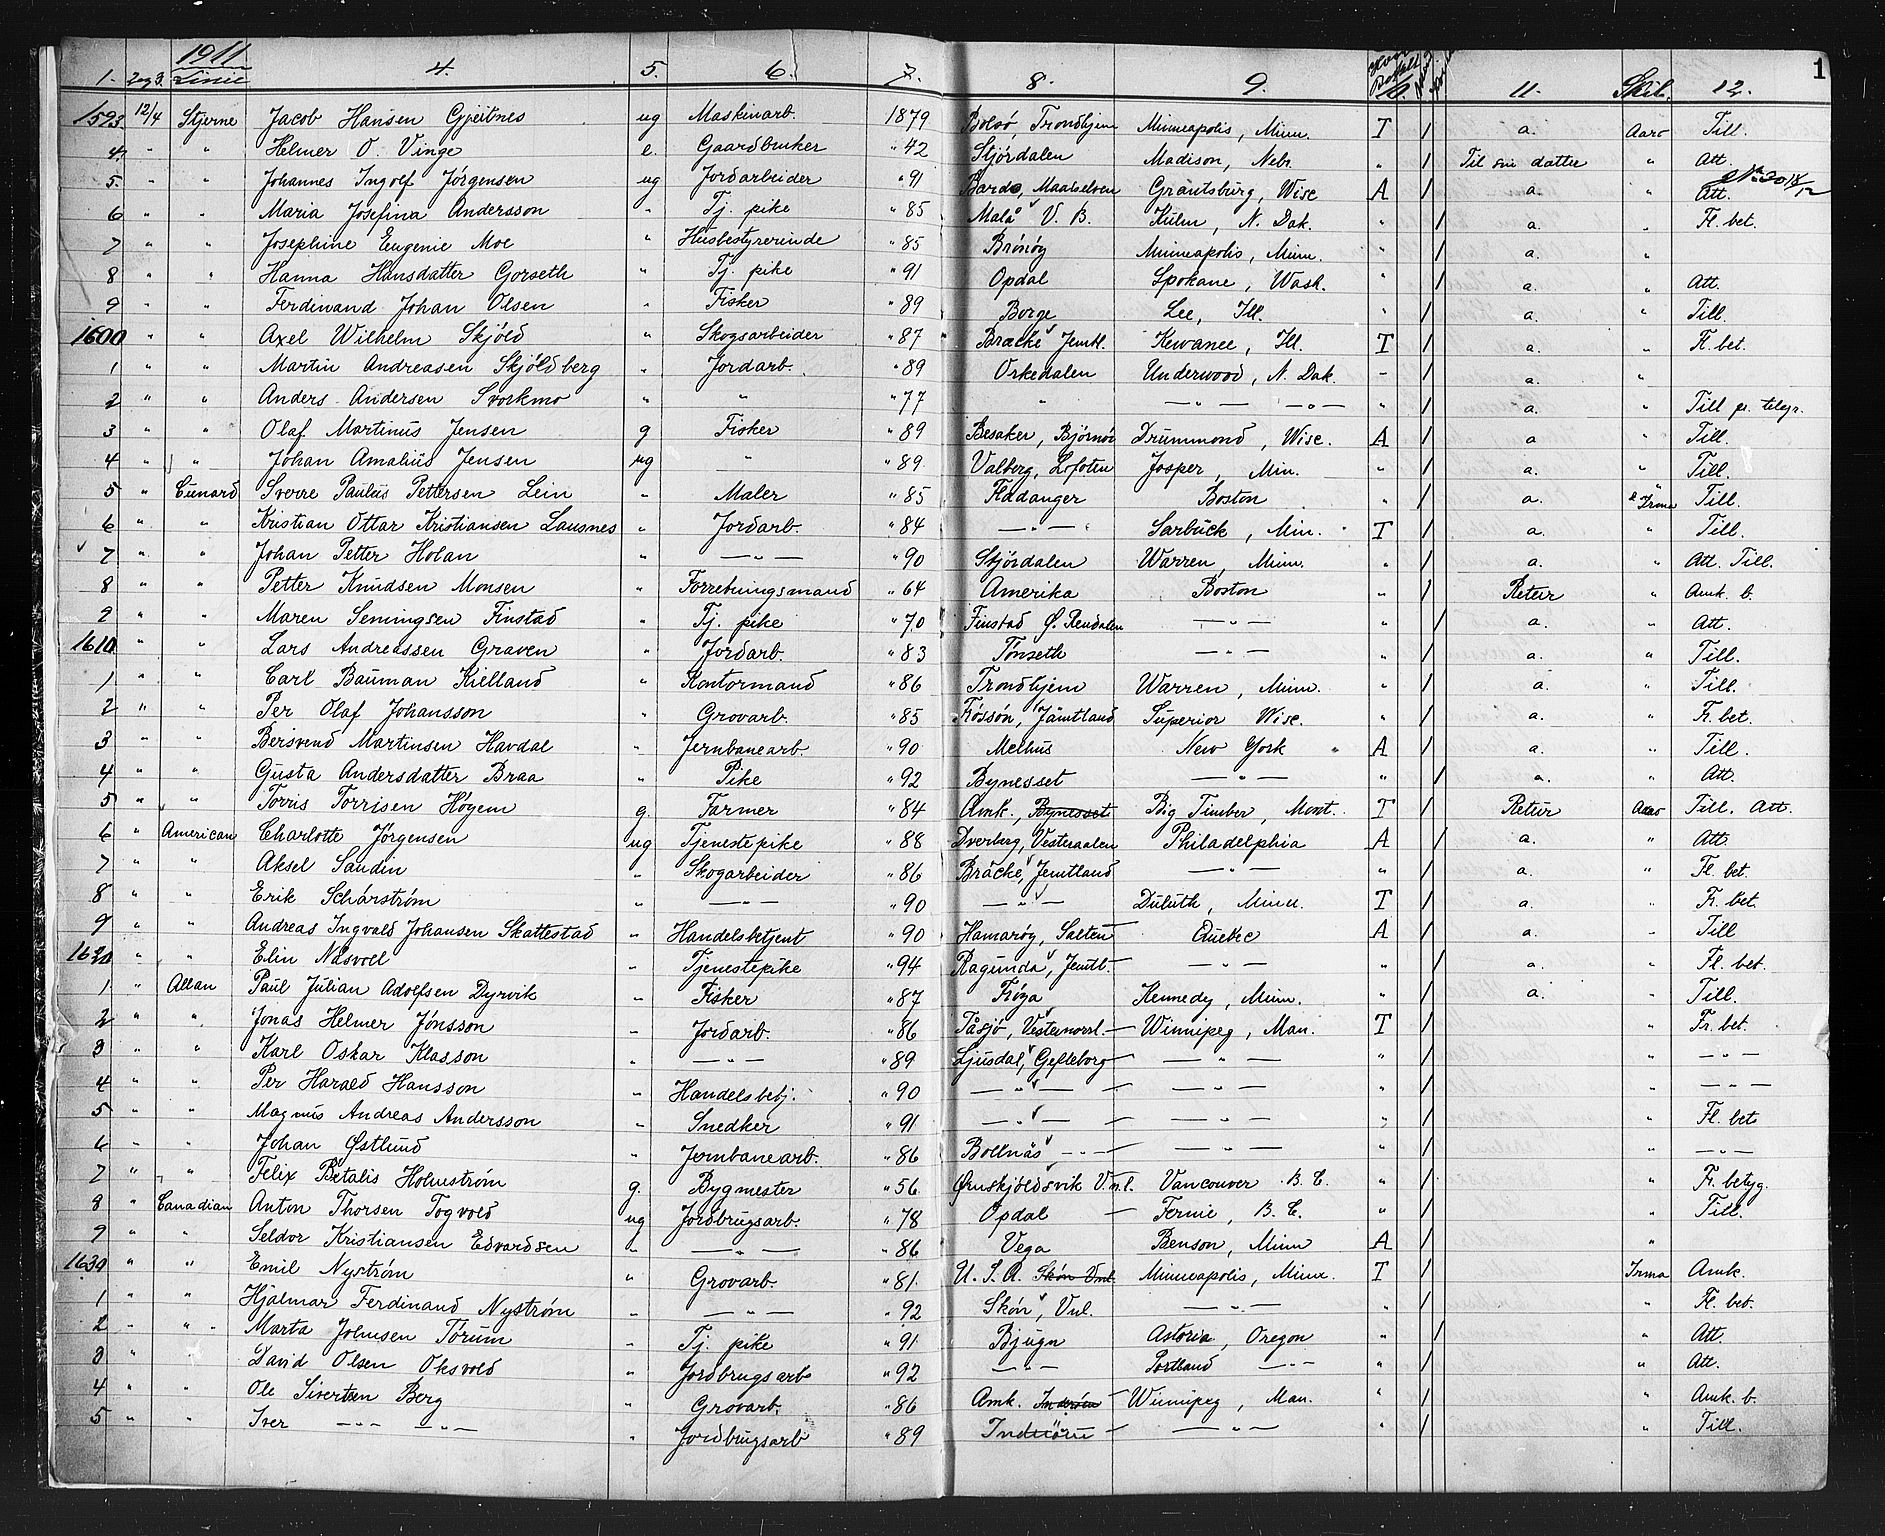 1911
1. 2og3. Linie 4. 5. 6. 7. 8. 9. 10. 11. Skib. 12. 1
1593 12/4 Stjerne Jacob Hansen Gjeitnes ug Maskinarb. 1879 Bolsö, Trondhjem Minneapolis, Minn. T / a. Aaro Till.
4. " " Helmer O. Vinge e. Gaardbruker " 42 Stjördalen Madison, Nebr. " / Til sin datter " Att.
5. " " Johannes Ingolf Jörgensen ug Jordarbeider " 91 Bardo, Maalselven Grantsburg, Wisc A / a. " Att.
6 " " Maria Josefina Andersson " Tj. pike " 85 Malå V. B. Kulm, N. Dak. " / a. " Fl. bet.
7 " " Josephine Eugenie Moe " Husbestyrerinde " 85 Brönöy Minneapolis, Minn. " / a. "
8 " " Hanna Hansdatter Gorseth " Tj. pike " 91 Opdal Spokane, Wash. " / a. " Att.
9 " " Ferdinand Johan Olsen " Fisker " 89 Borge Lee, Ill. " / a. " Till.
1600 " " Axel Wilhelm Skjöld " Skogsarbeider " 87 Bracke Jemtl. Kewanee, Ill. T / a. " Fl. bet.
1 " " Martin Andreasen Skjöldberg " Jordarb. " 89 Orkedalen Underwood, N. Dak. - / a. "
2 " " Anders Andersen Svorkmo " " " 77 " — " — — " — " / a. " Till pr. telegr.
3 " " Olaf Martinus Jensen g Fisker " 89 Besaker, Björnör Drummond, Wisc. A / a " Till.
4 " " Johan Amalius Jensen ug " " 89 Valberg, Lofoten Josper, Min. " / a. " Till.
5 " Cunard Sverre Paulus Pettersen Lein " Maler " 85 Fladanger Boston " / a. Irma Till.
6 " " Kristian Ottar Kristiansen Lausnes " Jordarb. " 84 — " — Sarbuck, Min. T / a. " Till.
7 " " Johan Petter Holan " — " — " 90 Stjördalen Warren, Minn. " / a. " Att. Till.
8 " " Petter Knudsen Monsen " Forretningsmand " 64 Amerika Boston " / Retur " Amk. b.
9 " " Maren Semingsen Finstad " Tj. pike " 70 Finstad Ø. Rendalen — " — " / a. " Att.
1610 " " Lars Andreassen Graven " Jordarb. " 83 Tönseth — " — " / a. " Till.
1 " " Carl Bauman Kielland " Kontormand " 86 Trondhjem Warren, Minn. " / a. " Till.
2 " " Per Olaf Johansson " Grovarb. " 85 Frössön, Jämtland Superior Wisc. " / a. " Fr. bet.
3 " " Bersvend Martinsen Havdal " Jernbanearb. " 90 Melhus New York " A / a. " Till.
4 " " Gusta Andersdatter Braa " Pike " 92 Bynesset — " — " / a. " Att.
5 " " Torris Torrisen Höyem g. Farmer " 84 Amk., Bynesset Big Timber, Mont. T / Retur Aaro Till. Att.
6 " American Charlotte Jörgensen ug Tjenestepike " 88 Dverberg, Vesteraalen Philadelphia A / a. " Att.
7 " " Aksel Sandin " Skogarbeider " 86 Bräcke, Jemtland — " — " / a. " Fl. bet.
8 " " Erik Schårström " — " — " 90 — " — Duluth, Minn. T / a. " Fr. bet.
9 " " Andreas Ingvald Johansen Skattestad " Handelsbetjent " 90 Hamaröy, Salten Quebec A / a. " Till
1620 " " Elin Näsvell " Tjenestepike " 94 Ragunda, Jemtl. — " — " / a. " Fl. bet.
1 " Allan Paul Julian Adolfsen Dyrvik " Fisker " 87 Fröya Kennedy, Minn. " / a. " Till.
2 " " Jonas Helmer Jönsson " Jordarb. " 86 Tåsjö, Vesternorrl. Winnipeg, Man. T / " Fr. bet.
3 " " Karl Oskar Klasson " — " — " 89 Ljusdal, Gefleborg — " — " / " — " —
4 " " Per Harald Hansson " Handelsbetj. " 90 — " — — " — " / " — " —
5 " " Magnus Andreas Andersson " Snedker " 91 — " — — " — " / " Fl. bet
6 " " Johan Østlund " Jernbanearb. " 86 Bollnäs — " — — " — " / " — " —
7 " " Felix Betalis Holmström g. Bygmester " 56 Ørnskjöldsvik V.n.l. Vancouver B. C. " / " Fr. betyg.
8 " Canadian Anton Thorsen Togvold ug Jordbrugsarb. " 78 Opdal Fernie, B. C. " / " Till.
9 " " Seldor Kristiansen Edvardsen " — " — " 86 Vega Benson, Minn A / "
1630 " " Emil Nyström " Grovarb. " 81 U. S. A. Skön Vnl. Minneapolis, Minn. T / Irma Amk.
1 " " Hjalmar Ferdinand Nyström " — " — " 92 Skön, Vnl. — " — " / " Fl. bet.
2 " " Marta Johnsen Torum " Tj. pike " 91 Bjugn Astoria, Oregon " / " Att.
3 " " David Olsen Oksvold " Jordbrugsarb " 92 — " — Portland — " — " / " Att.
4 " " Ole Sivertsen Berg " Grovarb. " 86 Amk. Inderöen Winnipeg, Man. " / " Amk. b.
5 " " Iver — " — — " — " Jordbrugsarb " 89 Inderöen — " — " / " Till.